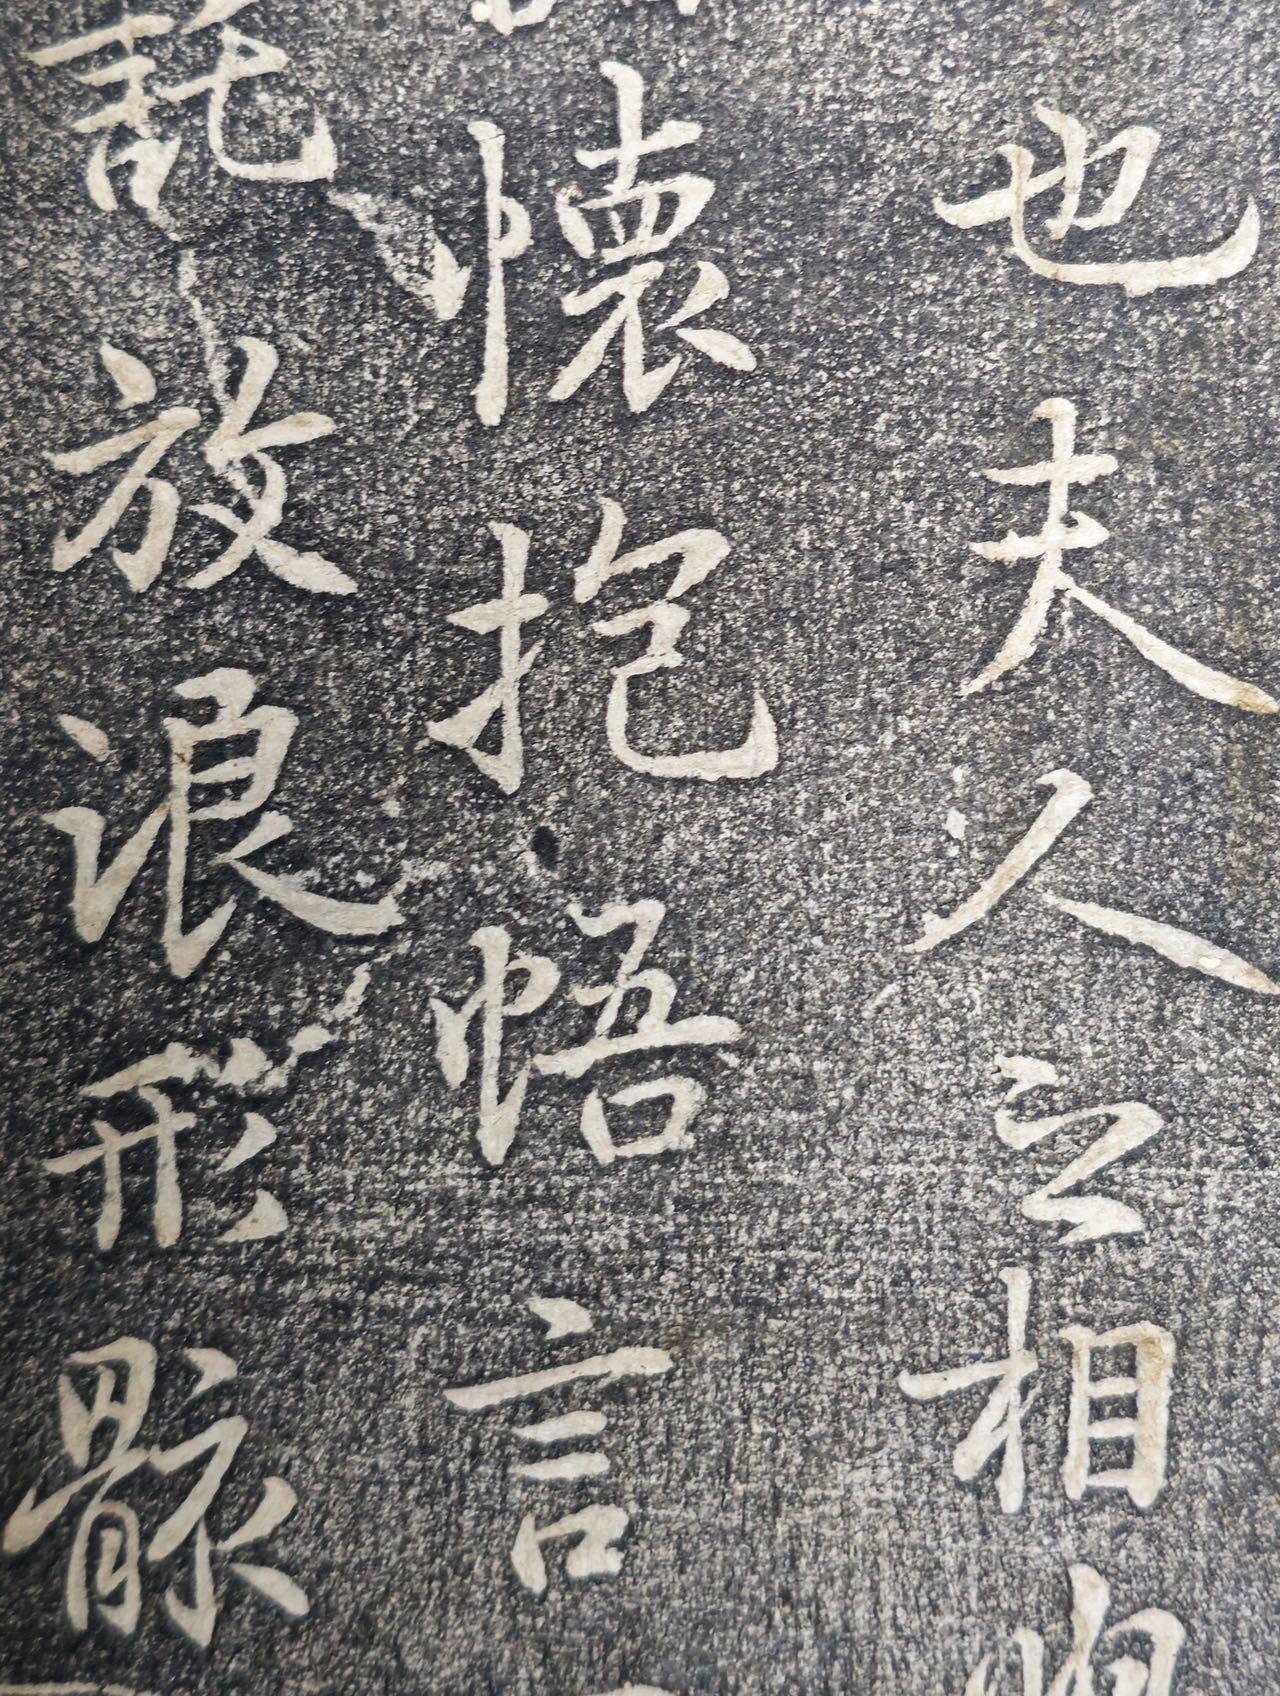 也夫人之相
懷抱悟言
託放浪形骸